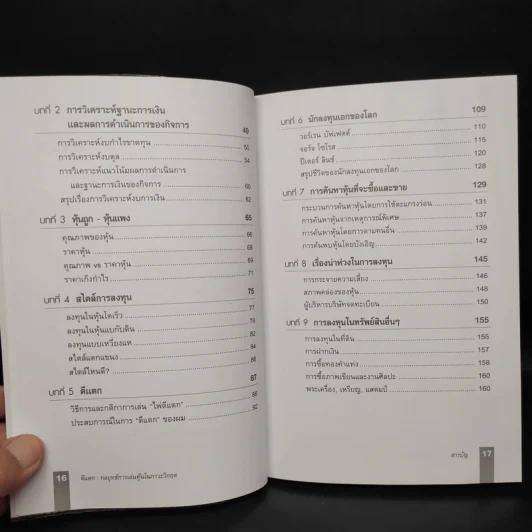 บทที่ 2 การวิเคราะห์ฐานะการเงิน
และผลการดำเนินการของกิจการ 49
การวิเคราะห์งบกำไรขาดทุน 50
การวิเคราะห์งบดุล 54
การวิเคราะห์แนวโน้มผลการดำเนินการ
และฐานะการเงินของกิจการ 60
สรุปเรื่องการวิเคราะห์งบการเงิน 62
บทที่ 3 หุ้นถูก - หุ้นแพง 65
คุณภาพของหุ้น 66
ราคาหุ้น 68
คุณภาพ vs ราคาหุ้น 69
ราคาเก็งกำไร 71
บทที่ 4 สไตล์การลงทุน 75
ลงทุนในหุ้นโตเร็ว 77
ลงทุนในหุ้นแบบกัดดิน 79
ลงทุนแบบเหวี่ยงแห 82
สไตล์แตกแขนง 84
สไตล์ไหนดี? 86
บทที่ 5 ตีแตก 87
วิธีการและกติกาการเล่น "ไพ่ตีแตก" 88
ประสบการณ์ในการ "ตีแตก" ของผม 92
16 ตีแตก : กลยุทธ์การเล่นหุ้นในภาวะวิกฤต
บทที่ 6 นักลงทุนเอกของโลก 109
วอร์เรน บัฟเฟตต์ 110
จอร์จ โซรอส 115
ปีเตอร์ ลินช์ 120
สรุปชีวิตของนักลงทุนเอกของโลก 128
บทที่ 7 การค้นหาหุ้นที่จะซื้อและขาย 129
กระบวนการค้นหาหุ้นโดยการใช้ตะแกรงร่อน 131
การค้นหาหุ้นจากเหตุการณ์พิเศษ 137
การค้นหาหุ้นโดยการตามคนอื่น 139
การค้นพบหุ้นโดยบังเอิญ 142
บทที่ 8 เรื่องน่าห่วงในการลงทุน 145
การกระจายความเสี่ยง 146
สภาพคล่องของหุ้น 148
ผู้บริหารบริษัทจดทะเบียน 150
บทที่ 9 การลงทุนในทรัพย์สินอื่นๆ 155
การลงทุนในที่ดิน 155
การฝากเงิน 157
การซื้อทองคำแท่ง 158
การซื้อภาพเขียนและงานศิลปะ 160
พระเครื่อง, เหรียญ, แสตมป์ 160
สารบัญ 17